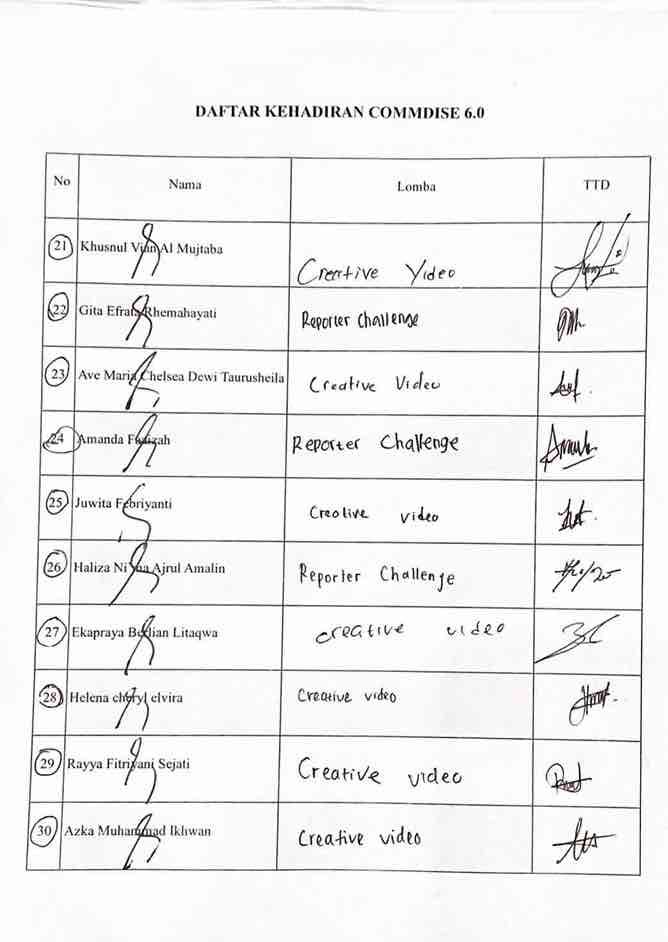 DAFTAR KEHADIRAN COMMDISE 6.0
No Nama Lomba TTD
21 Khusnul Vian Al Mujtaba Creative Video
22 Gita Efrata Rhemahayati Reporter Challenge
23 Ave Maria Chelsea Dewi Taurusheila Creative Video
24 Amanda Faizah Reporter Challenge
25 Juwita Febriyanti Creative video
26 Haliza Ni Ajrul Amalin Reporter Challenge
27 Ekapraya Berlian Litaqwa creative video
28 Helena cheryl elvira Creative video
29 Rayya Fitriyani Sejati Creative video
30 Azka Muhammad Ikhwan Creative video